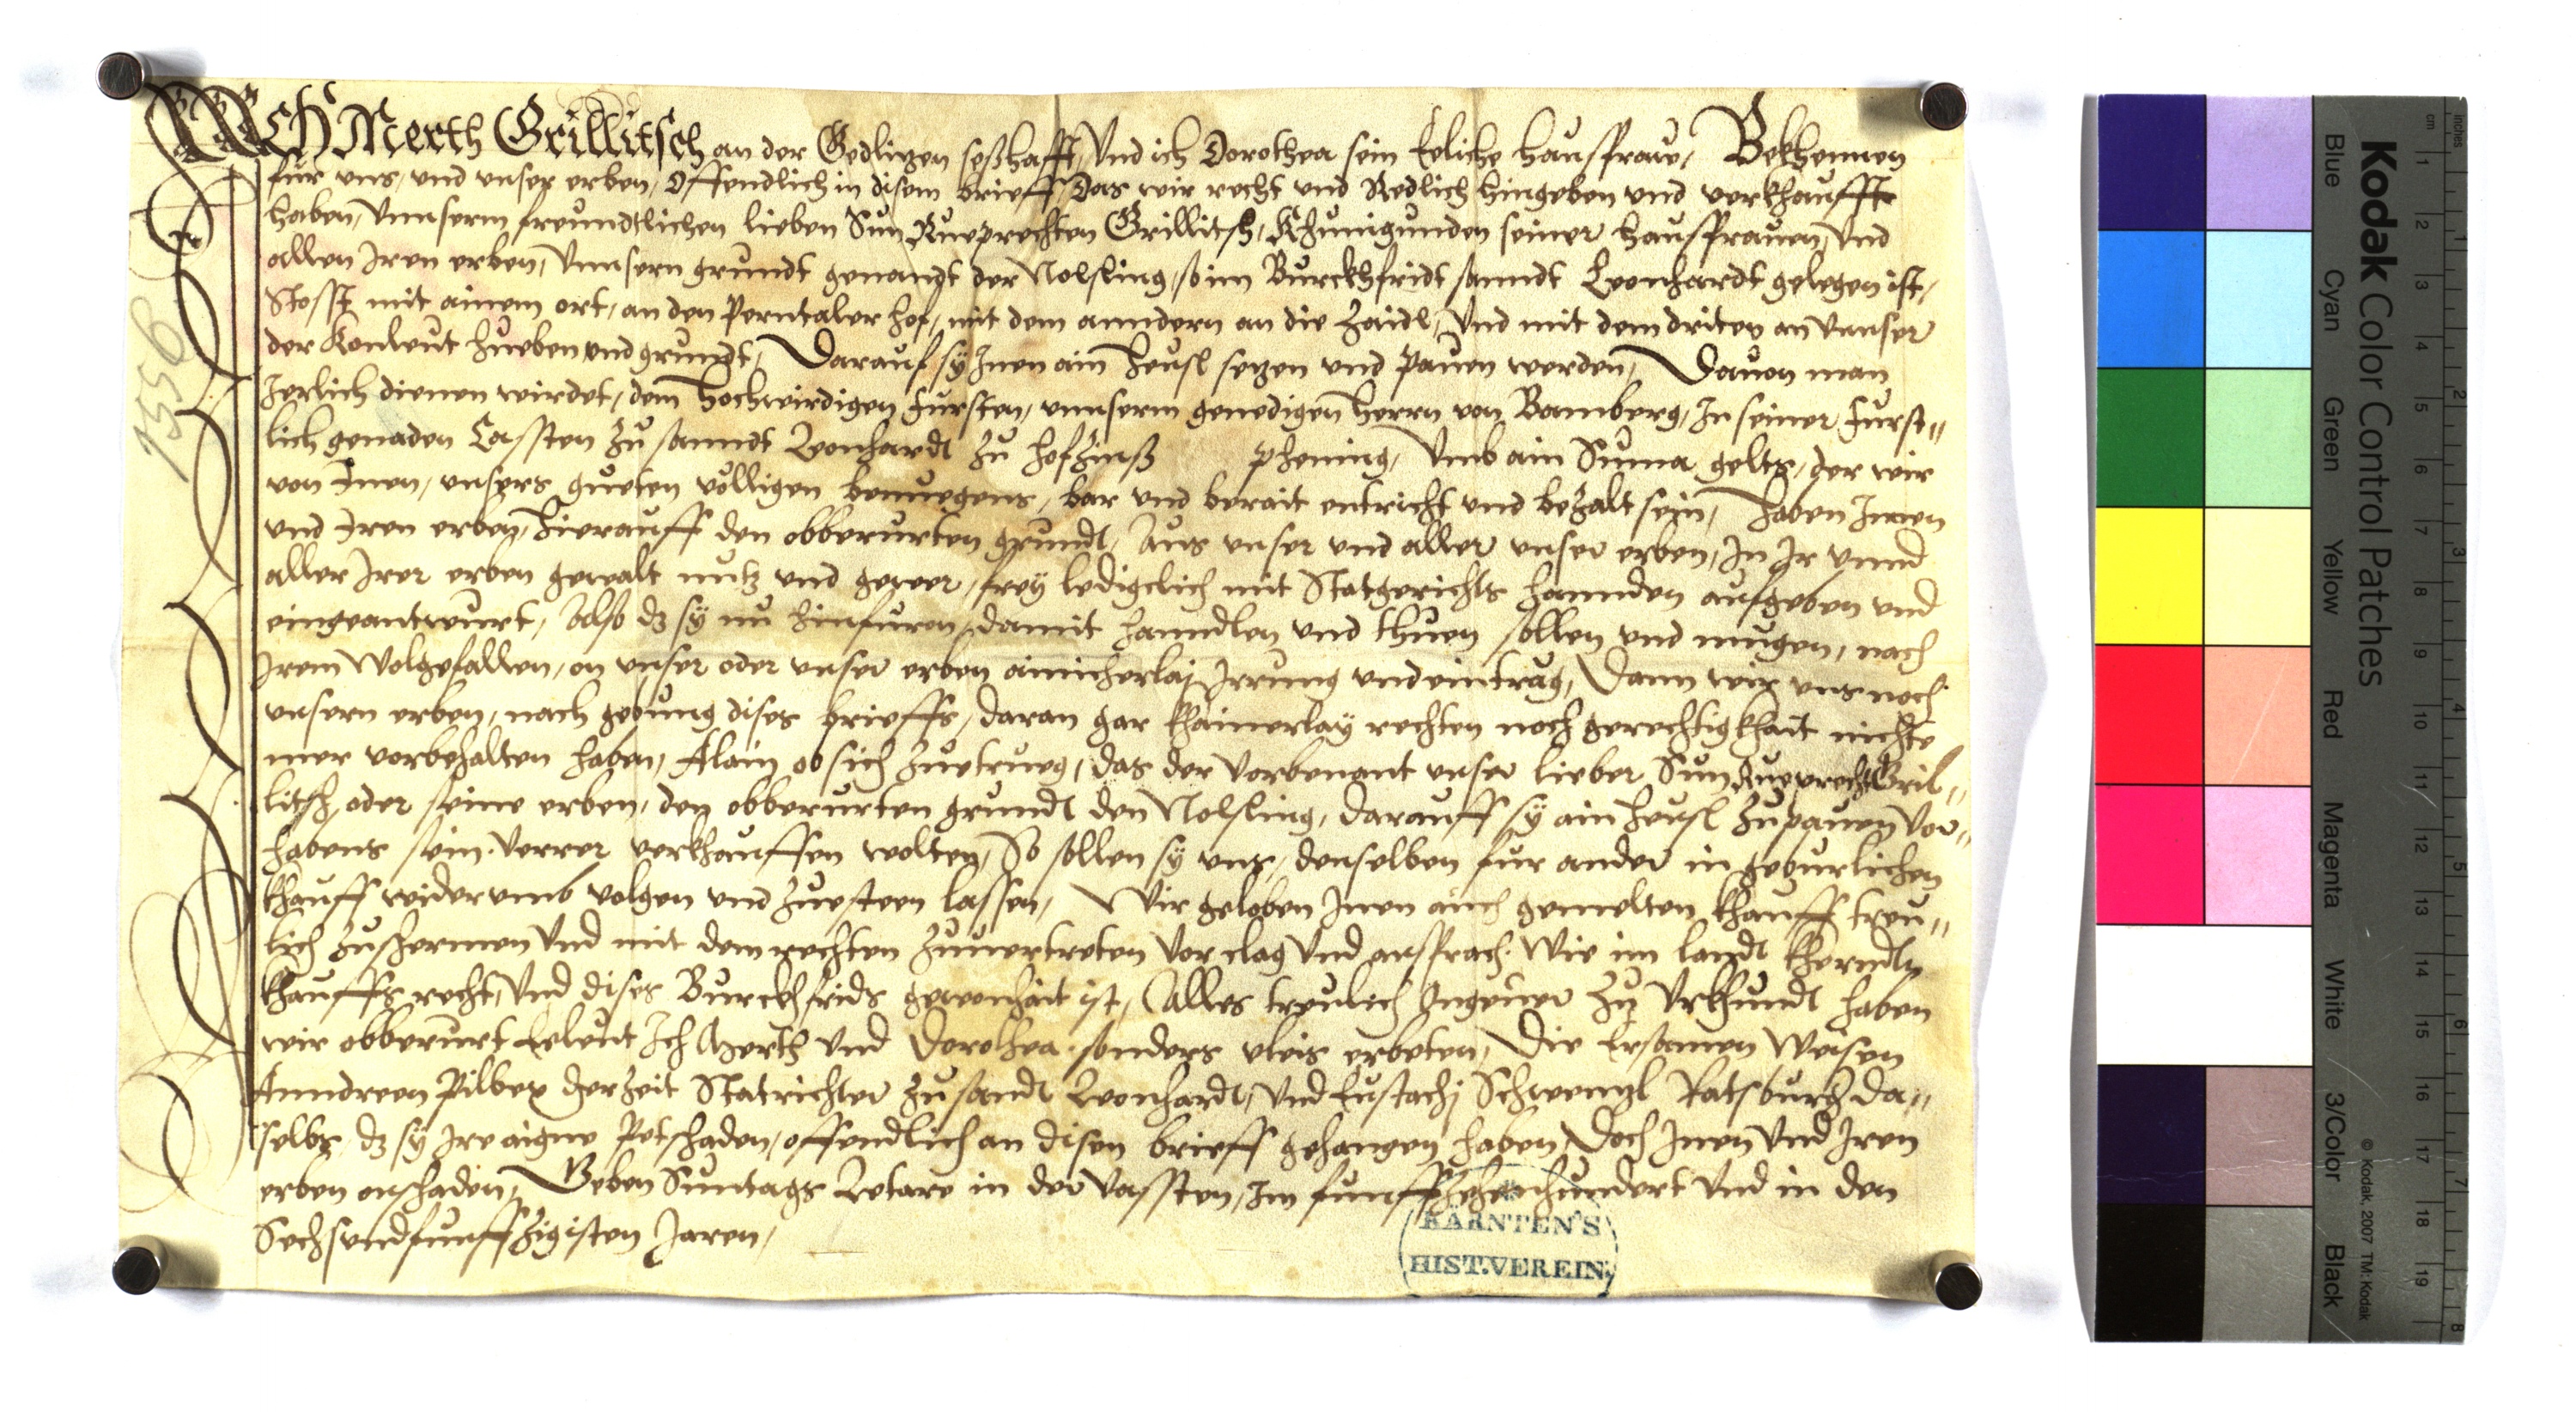 ICH Merth Grillitsch an der Gedlitzen seßhafft, Vnd ich Dorothea sein Eeliche hausfraw, Bekhennen
für vns, vnd vnser erben, Offendlich in disem brieff, Das wir recht vnd Redlich hingeben vnd verkhaufft
haben, Vnnserm freundtlichen lieben Sun Rueprechten Grillitsch, Khunigunden seiner hausfrauen, Vnd
allen Iren erben, Vnnsern grundt genandt der Nolsling, so im Burckhfridt sanndt Leonhardt gelegen ist,
Stosst mit ainem ort, an den Perntaler hof, mit dem anndern an die Zaidl, Vnd mit dem driten an Vnnser
der Konleut hueben vnd grundt, Darauf sy Inen ain heusl setzen vnd pauen werden, Dauon man
Jerlich dienen wirdet, dem hochwirdigen Fursten, vnnserm genedigen herrn von Bamberg, In seiner furst„
lich genaden Cassten zu sanndt Leonhardt zu hofzinß phening, Vmb ain Suma gelts, der wir
von Inen, vnsers gueten völligen benuegens, bar vnd berait entricht vnd bezalt sein, haben Innen
vnd Iren erben, hierauff den obberurten grundt, Aus vnser vnd aller vnser erben, In Ir vnnd
aller Irer erben gewalt nutz vnd gewer, frey ledigclich mit Statgerichts hannden aufgeben vnd
eingeantwurt, Also dz sy nu hinfuren, damit hanndlen vnd thuen sollen vnd mugen, nach
Irem Wolgefallen, on vnser oder vnser erben ainicherlaj Irrung vnd eintrag, Dann wir vns noch
vnsern erben, nach gebung dises brieffs, daran gar khainerlay rechten noch gerechtigkhait nichts
mer vorbehalten haben, Alain ob sich zuetrueg, das der Vorbenant vnser lieber Sun Rueprecht Gril„
litsch oder seine erben, den obberurten grundt den Nolsling, darauff sy ain heusl zupauen Vor„
habens sein. Verrer verkhauffen wolten, So sollen sy vns, denselben fur ander in geburlichen
khauff widerumb volgen vnd zuesteen lassen, Wir geloben Inen auch gemelten khauff treu„
lich zuschermen Vnd mit dem rechten zuuertreten Vor clag Vnd ansprach. Wie im landt Kherndtn
khauffs recht, Vnd dises Burckhfrids gewonhait ist, Alles treulich Vngeuer Zu Vrkhundt haben
wir obberurt Eeleut Ich Merth Vnd Dorothea. sonders vleis erbeten, Die Ersamen Weisen
Anndreen Pilber derzeit Statrichter zu sandt Leonhardt, Vnd Eustachj Schwentzl Ratsburger da„
selbs, dz sy Ire aigne Petschaden, offendlich an disen brieff gehangen haben, Doch Inen Vnd Iren
erben onschaden, Geben Suntags Letare in der Vassten, Im funffzehenhundert Vnd in den
Sechsundfunffzigisten Jaren,
1556
KÄRNTEN'S
HIST. VEREIN.
Kodak Color Control Patches
Blue Cyan Green Yellow Red Magenta White 3/Color Black
© Kodak, 2007 TM: Kodak
inches 1 2 3 4 5 6 7 8
cm 1 2 3 4 5 6 7 8 9 10 11 12 13 14 15 16 17 18 19